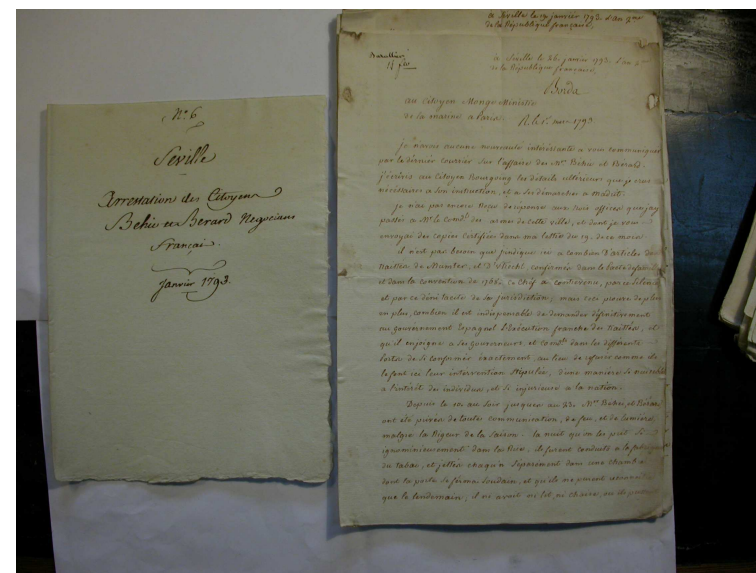 N.° 6
Seville
Arrestation des Citoyens
Behic et Berard Negocians
Français.
Janvier 1793.
a Seville le 19 janvier 1793. l'an 2me
de la République françoise,
a Seville le 26. janvier 1793. l'an 2me
de la République françoise,
Au Citoyen Monge Ministre
de la marine a Paris.
1793
je n'avois aucune nouveauté intéressante a vous communiquer
par le dernier courrier sur l'affaire des Mrs. Behic et Berard.
J'écrivis au Citoyen Bourgoing les détails ultérieurs que je crus
nécessaires a son instruction, et a ses démarches a Madrid.
je n'ai pas encore reçu de réponse aux trois offices que j'ay
passés a Mr. le Comdt. des armes de cette ville, et dont je vous
envoyai des copies certifiées dans ma lettre du 19. de ce mois
il n'est pas besoin que j'indique ici a combien d'articles des
traittés de Munster, et d'Utrecht, confirmés dans le Pacte
et dans la convention de 1786. ce chef a contrevenu, par ce silence
et par ce déni tacite de la jurisdiction; mais ceci prouve de plus
en plus, combien il est indispensable de demander définitivement
au gouvernement Espagnol l'exécution franche des traittés, et
qu'il enjoigne a ses gouverneurs, et comdts. dans les différents
Ports de s'y conformer exactement, au lieu de
le font ici leur intervention stipulée, d'une manière si nuisible
a l'intérêt des individus, et si injurieuse a la nation.
Depuis le au soir jusques au 23. Mrs. Behic et Bérard
ont été privés de toute communication, de feu, et de lumière
malgré la Rigueur de la Saison. la nuit qu'on les prit si
ignominieusement dans la Rue, ils furent conduits a la fabrique
du tabac, et jettés chaqu'un séparément dans une chambre
dont la porte se ferma soudain, et qu'ils ne purent reconnoître
que le lendemain, il n'y avoit ni lit, ni chaise, ni